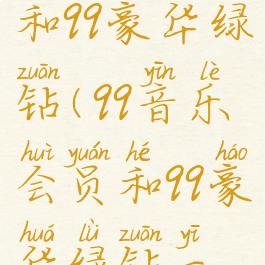 和99豪华绿
zuān yīn lè
钻(99音乐
huì yuán hé háo
会员和99豪
huá lǜ zuān yī
华绿钻一